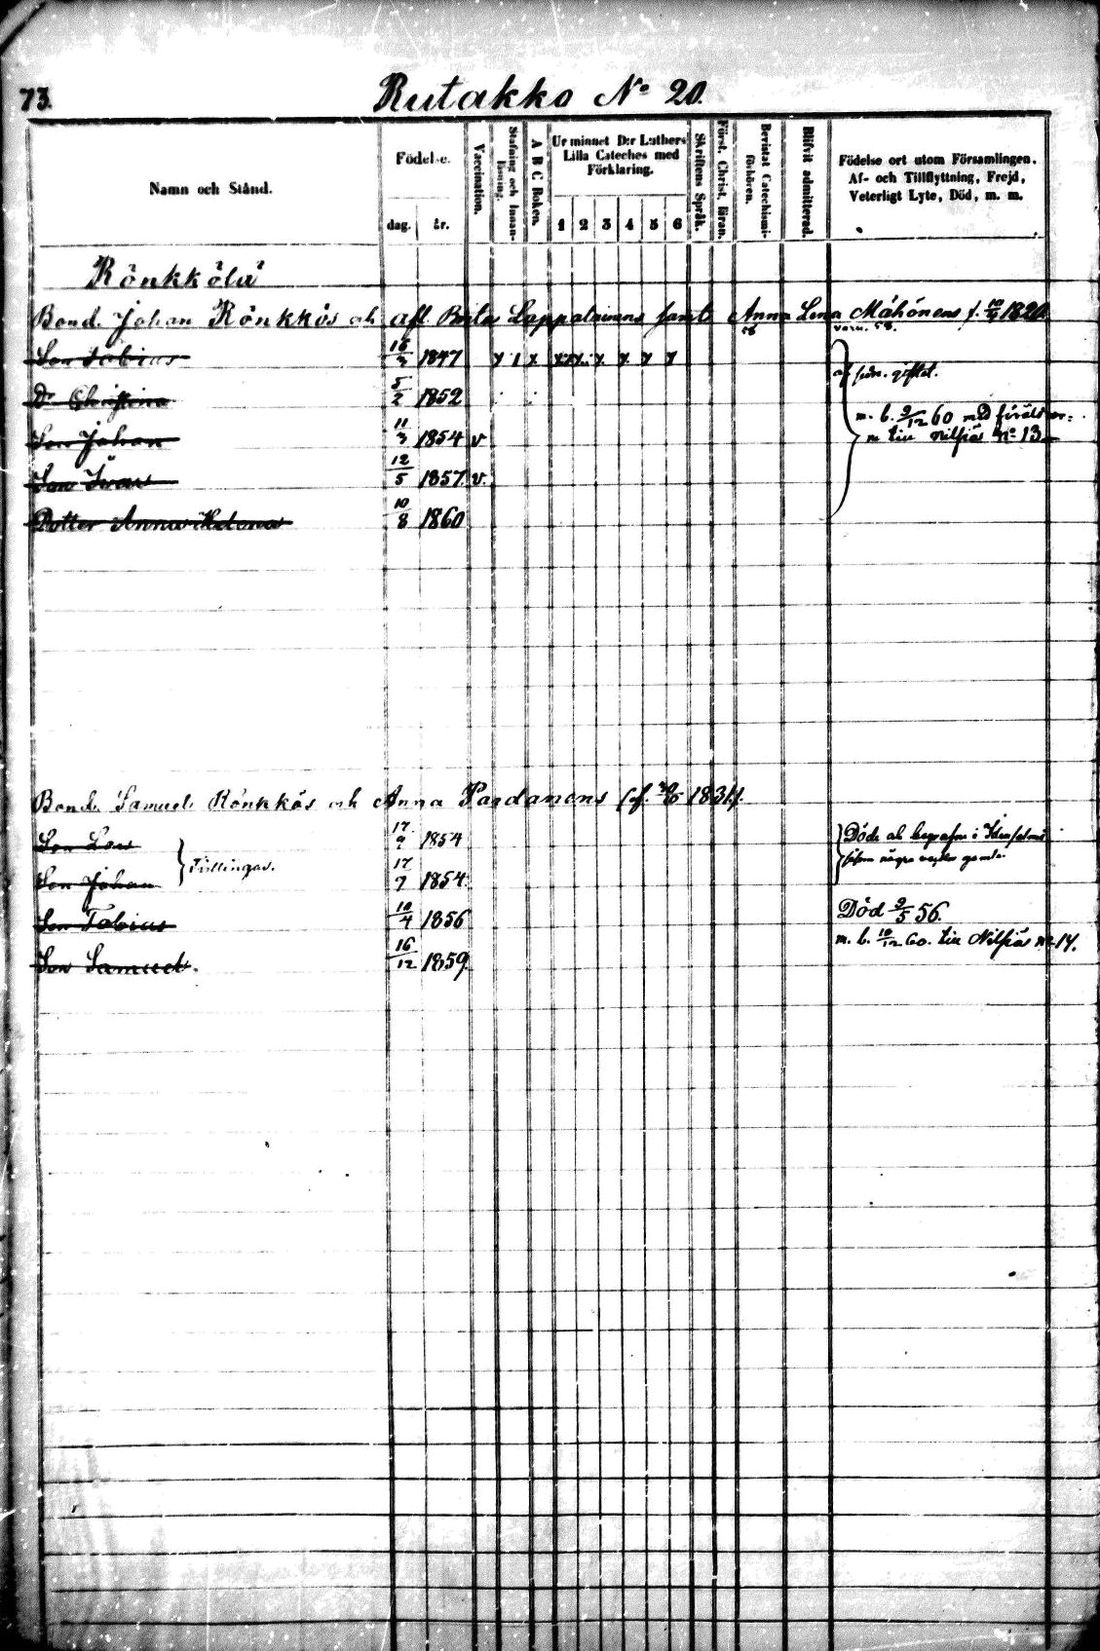 73.
Rutakko No 20.
Namn och Stånd.
Födelse.
dag. år.
Vaccination.
Stafning och Innan-
läsning.
A B C. Boken.
Ur minnet D:r Luthers
Lilla Cateches med
Förklaring.
1 2 3 4 5 6
Skriftens Språk.
Först. Christ. läran.
Bevistat Catechismi-
förhören.
Blifvit admitterad.
Födelse ort utom Församlingen.
Af- och Tillflyttning, Frejd,
Veterligt Lyte, Död, m. m.
Rönkkölä
Bond. Johan Rönkkös och afl. Brita Lappalainens samt Anna Lena Mähönens f. 1820.
Son Tobias 1847 x 1 x x x x x x x
Dr Christina 5/2 1852
af förr. giftet.
Son Johan 11/3 1854 v
m. b. 9/12 60 med föräldrar
till Nilsiäs No 13
Son Ivar 12/5 1857 v.
Dotter Anna Helena 10/8 1860
Bond. Samuel Rönkkös och Anna Pardanens f. 1831.
Son Lars 17/9 1854
Tvillingar.
Döde och begrafne i Idensalmi
några veckor gamla.
Son Johan 17/9 1854.
Son Tobias 10/4 1856 Död 9/5 56.
Son Samuel. 16/12 1859. m. b. 10/12 60. till Nilsiäs No 14.